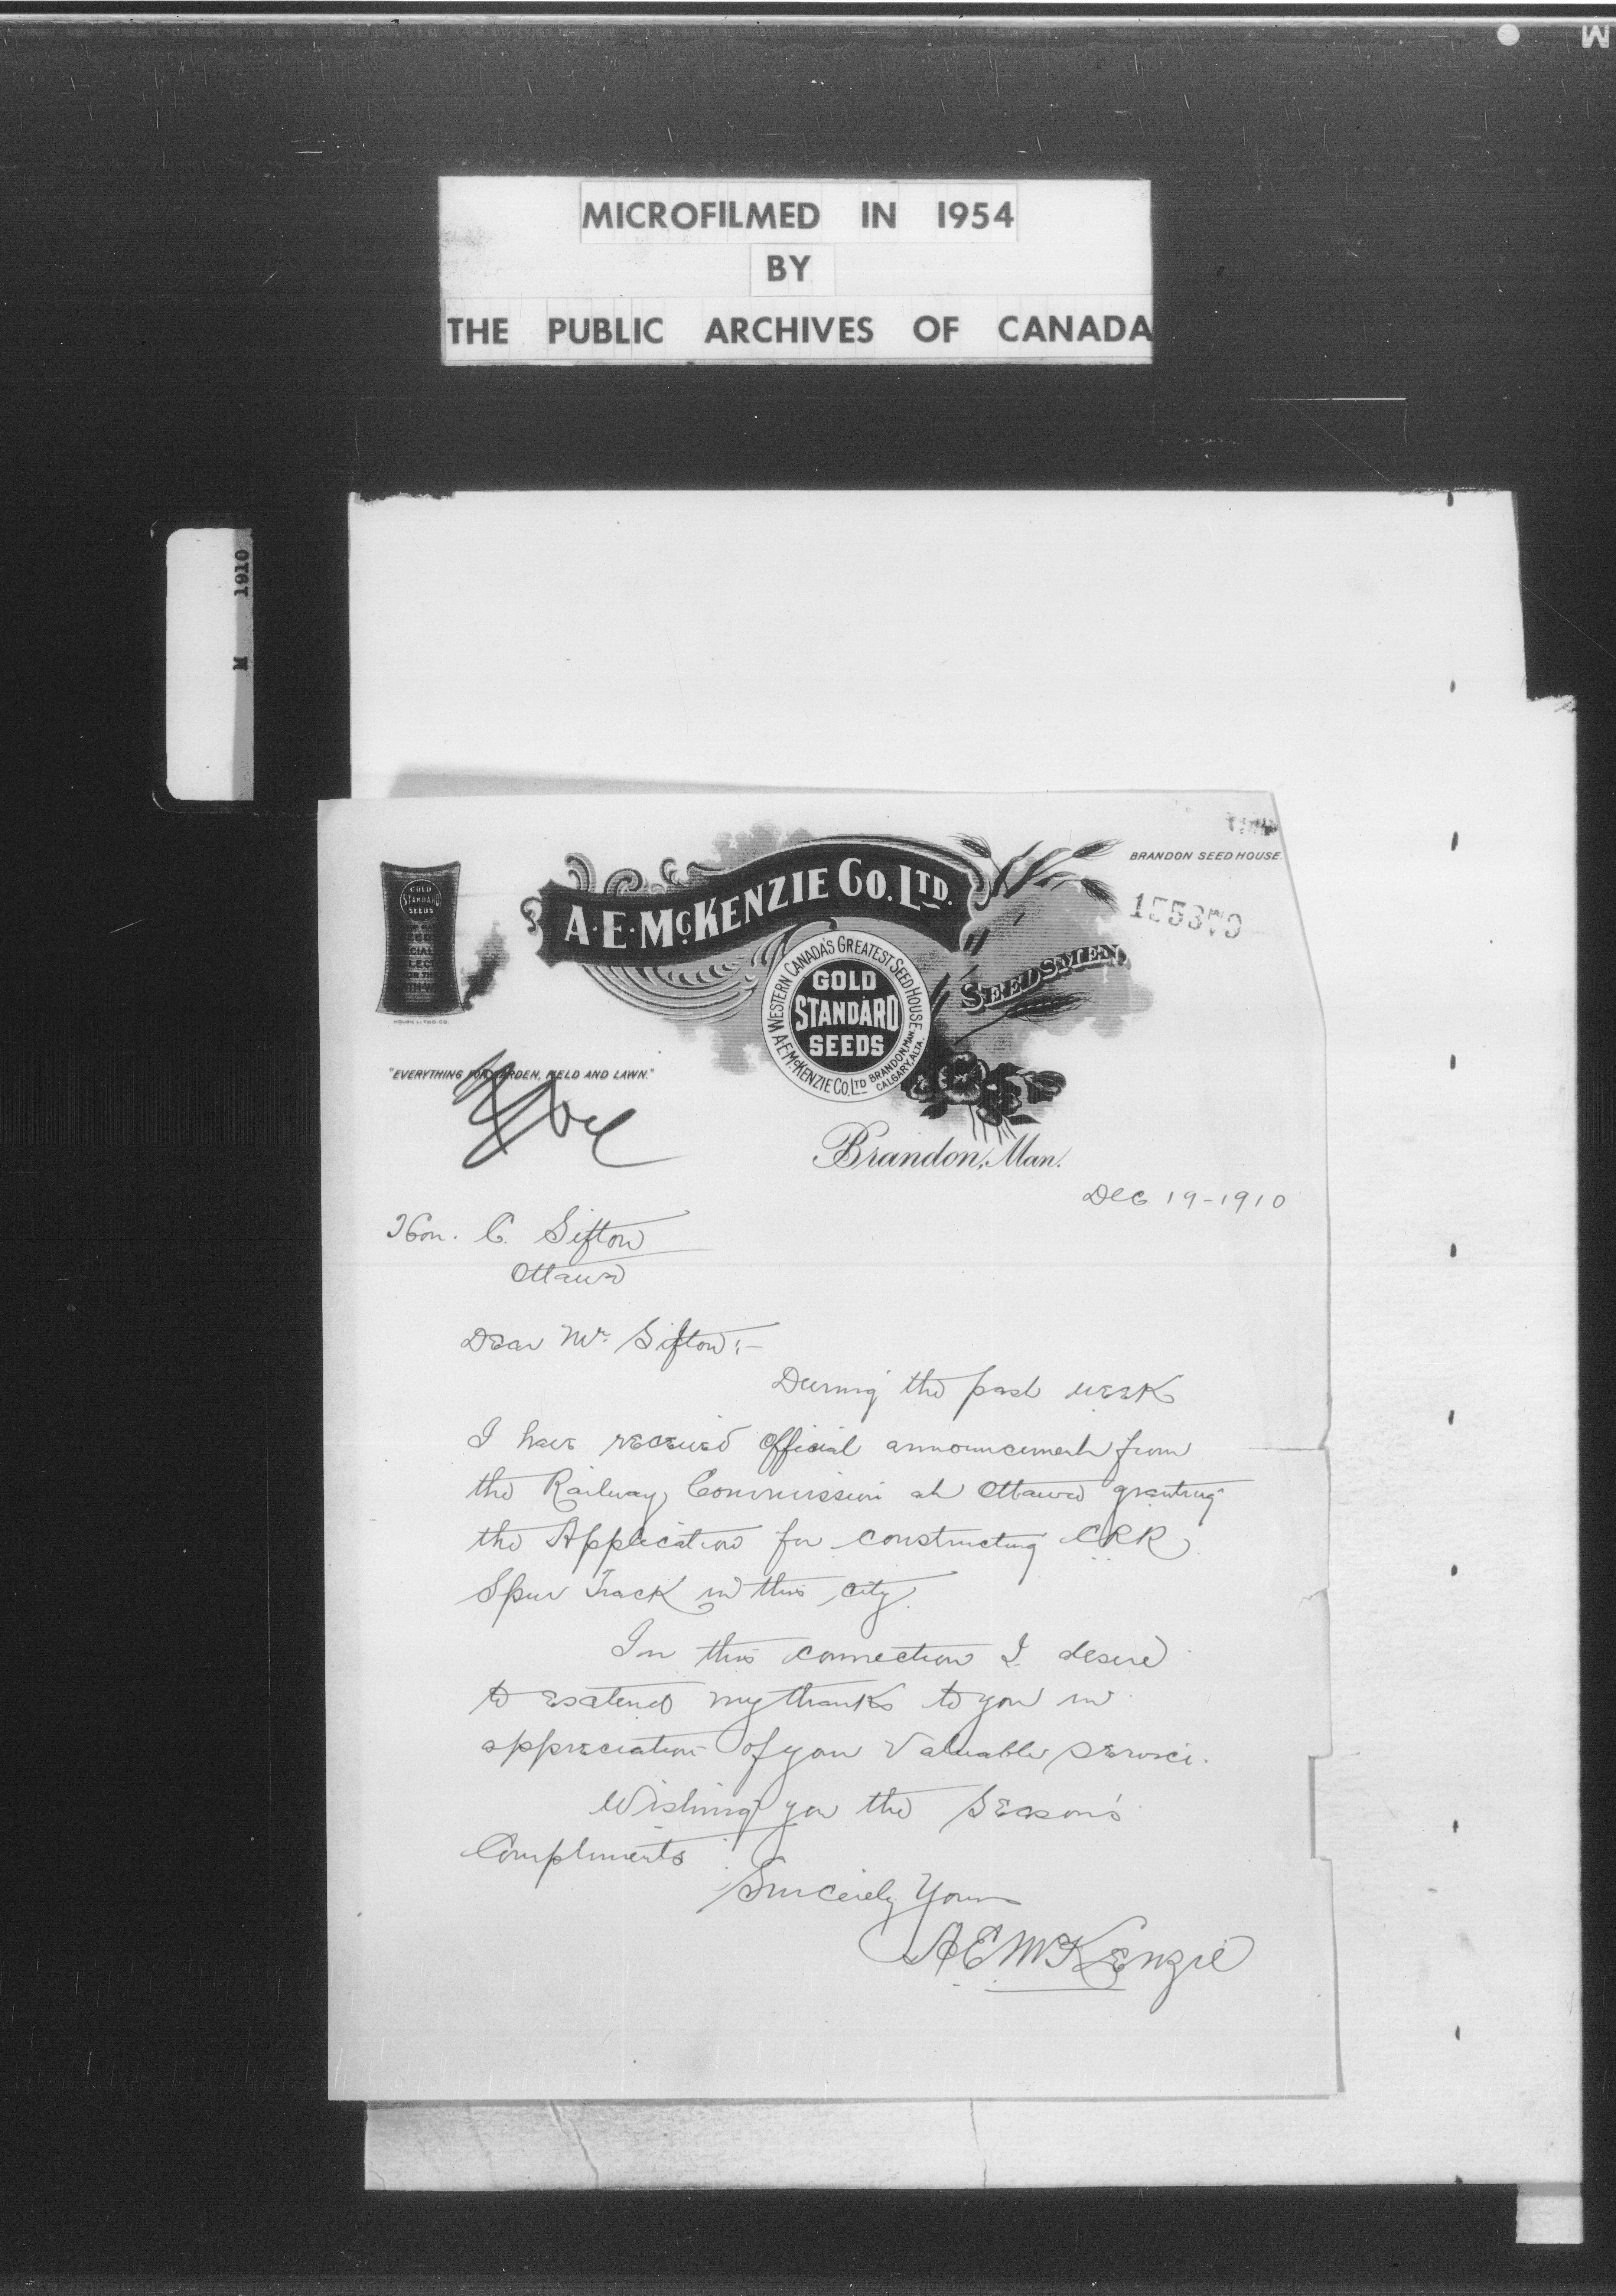 M
MICROFILMED IN 1954
BY
THE PUBLIC ARCHIVES OF CANADA
M 1910
BRANDON SEED HOUSE
A.E. McKENZIE CO. LTD.
SEEDSMEN
GOLD
STANDARD
SEEDS
WESTERN CANADA'S GREATEST SEED HOUSE
A.E. McKENZIE CO. LTD BRANDON, MAN. CALGARY, ALTA.
GOLD
STANDARD
SEEDS
"EVERYTHING FOR GARDEN, FIELD AND LAWN."
Brandon, Man.
Dec 19-1910
Hon. C. Sifton
Ottawa
Dear Mr. Sifton:-
During the past week
I have received official announcement from
the Railway Commission at Ottawa granting
the Application for constructing
Spur Track in this city.
In this connection I desire
to extend my thanks to you in
appreciation of your Valuable service.
Wishing you the Season's
Compliments
Sincerely Yours
A E McKenzie